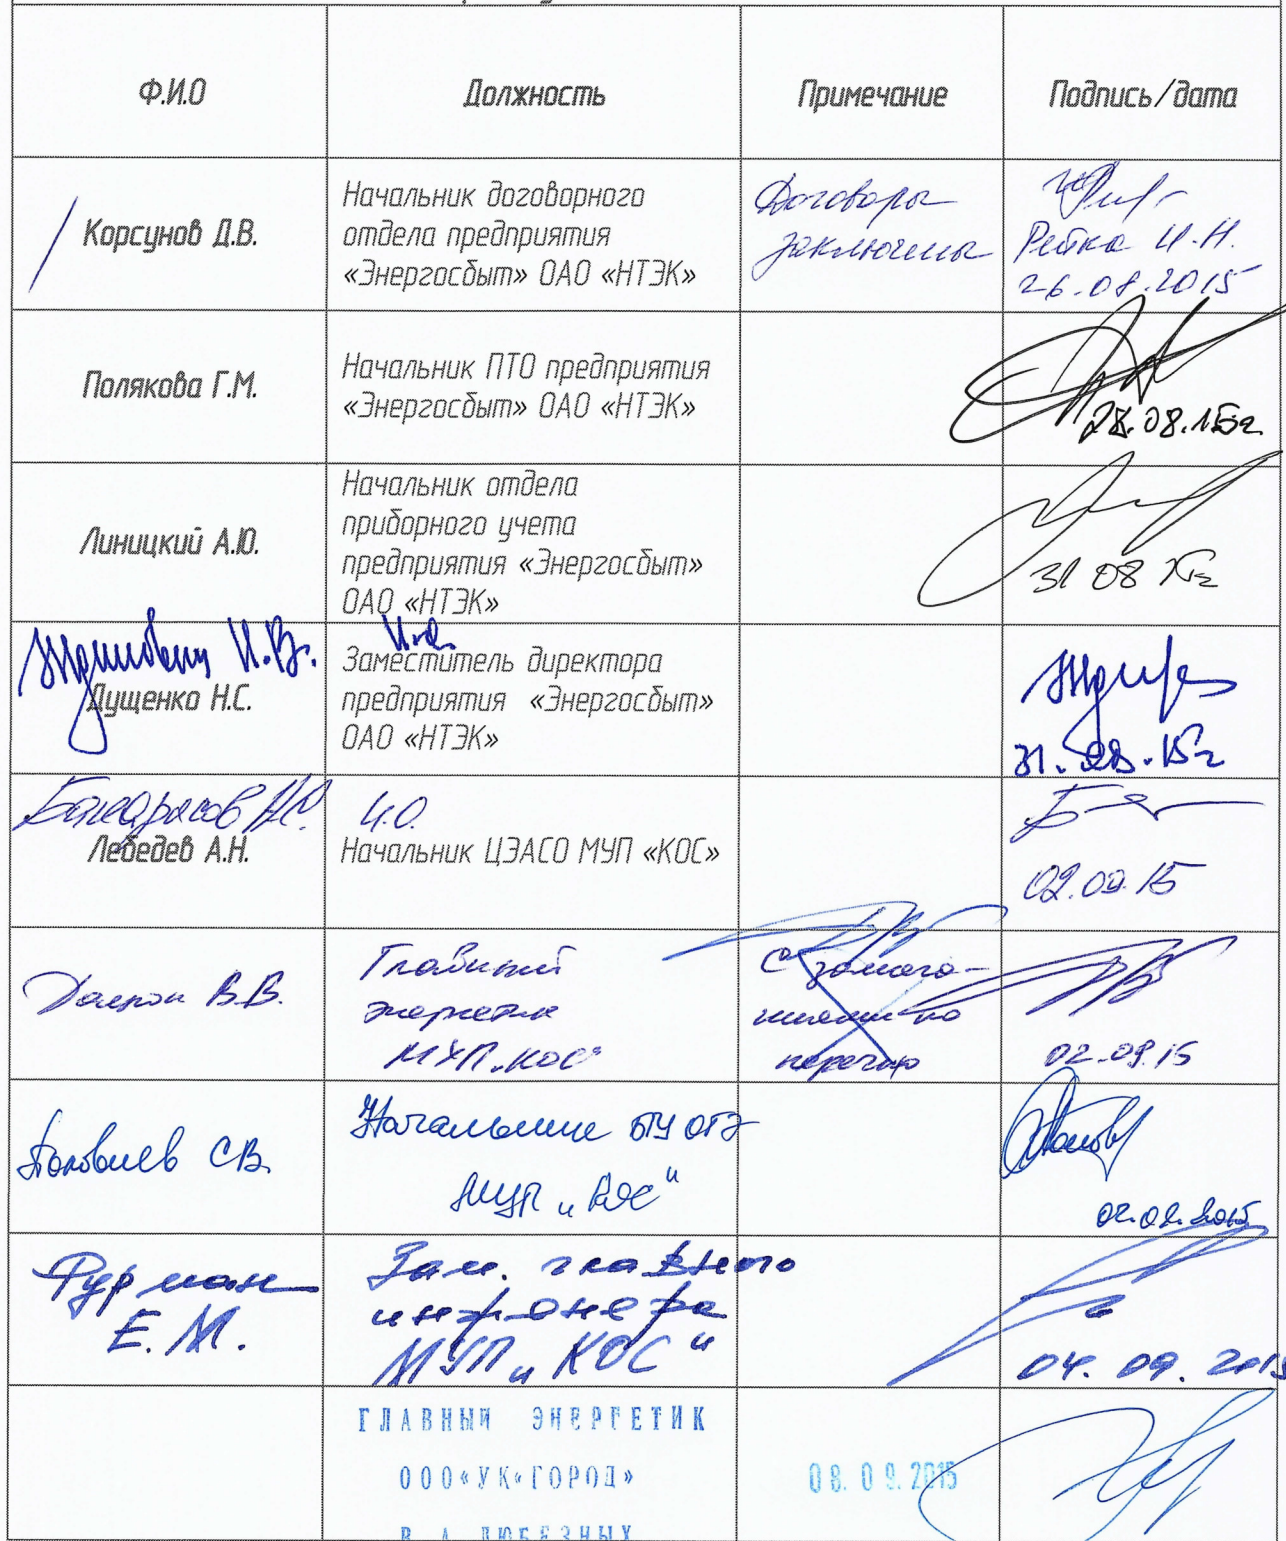 Ф.И.О
Должность
Примечание
Подпись/дата
Корсунов Д.В.
Начальник договорного
отдела предприятия
«Энергосбыт» ОАО «НТЭК»
Договоры
заключены
Рейка И.Н.
26.08.2015
Полякова Г.М.
Начальник ПТО предприятия
«Энергосбыт» ОАО «НТЭК»
28.08.15г.
Линицкий А.Ю.
Начальник отдела
приборного учета
предприятия «Энергосбыт»
ОАО «НТЭК»
31 08 15г
Жданович И.В.
Дущенко Н.С.
И.о.
Заместитель директора
предприятия «Энергосбыт»
ОАО «НТЭК»
31.08.15г
Лебедев А.Н.
И.О.
Начальник ЦЭАСО МУП «КОС»
02.09.15
В.В.
Главный
энергетик
МУП „КОС"
С замеча-
ниями по
перечню
02.09.15
С.В.
Начальник ОТЭ
МУП „КОС"
02.09.2015
Фурман
Е.М.
Зам. главного
инженера
МУП „КОС"
04.09.2015
ГЛАВНЫЙ ЭНЕРГЕТИК
ООО«УК«ГОРОД»
В.А.ЛЮБЕЗНЫХ
08.09.2015